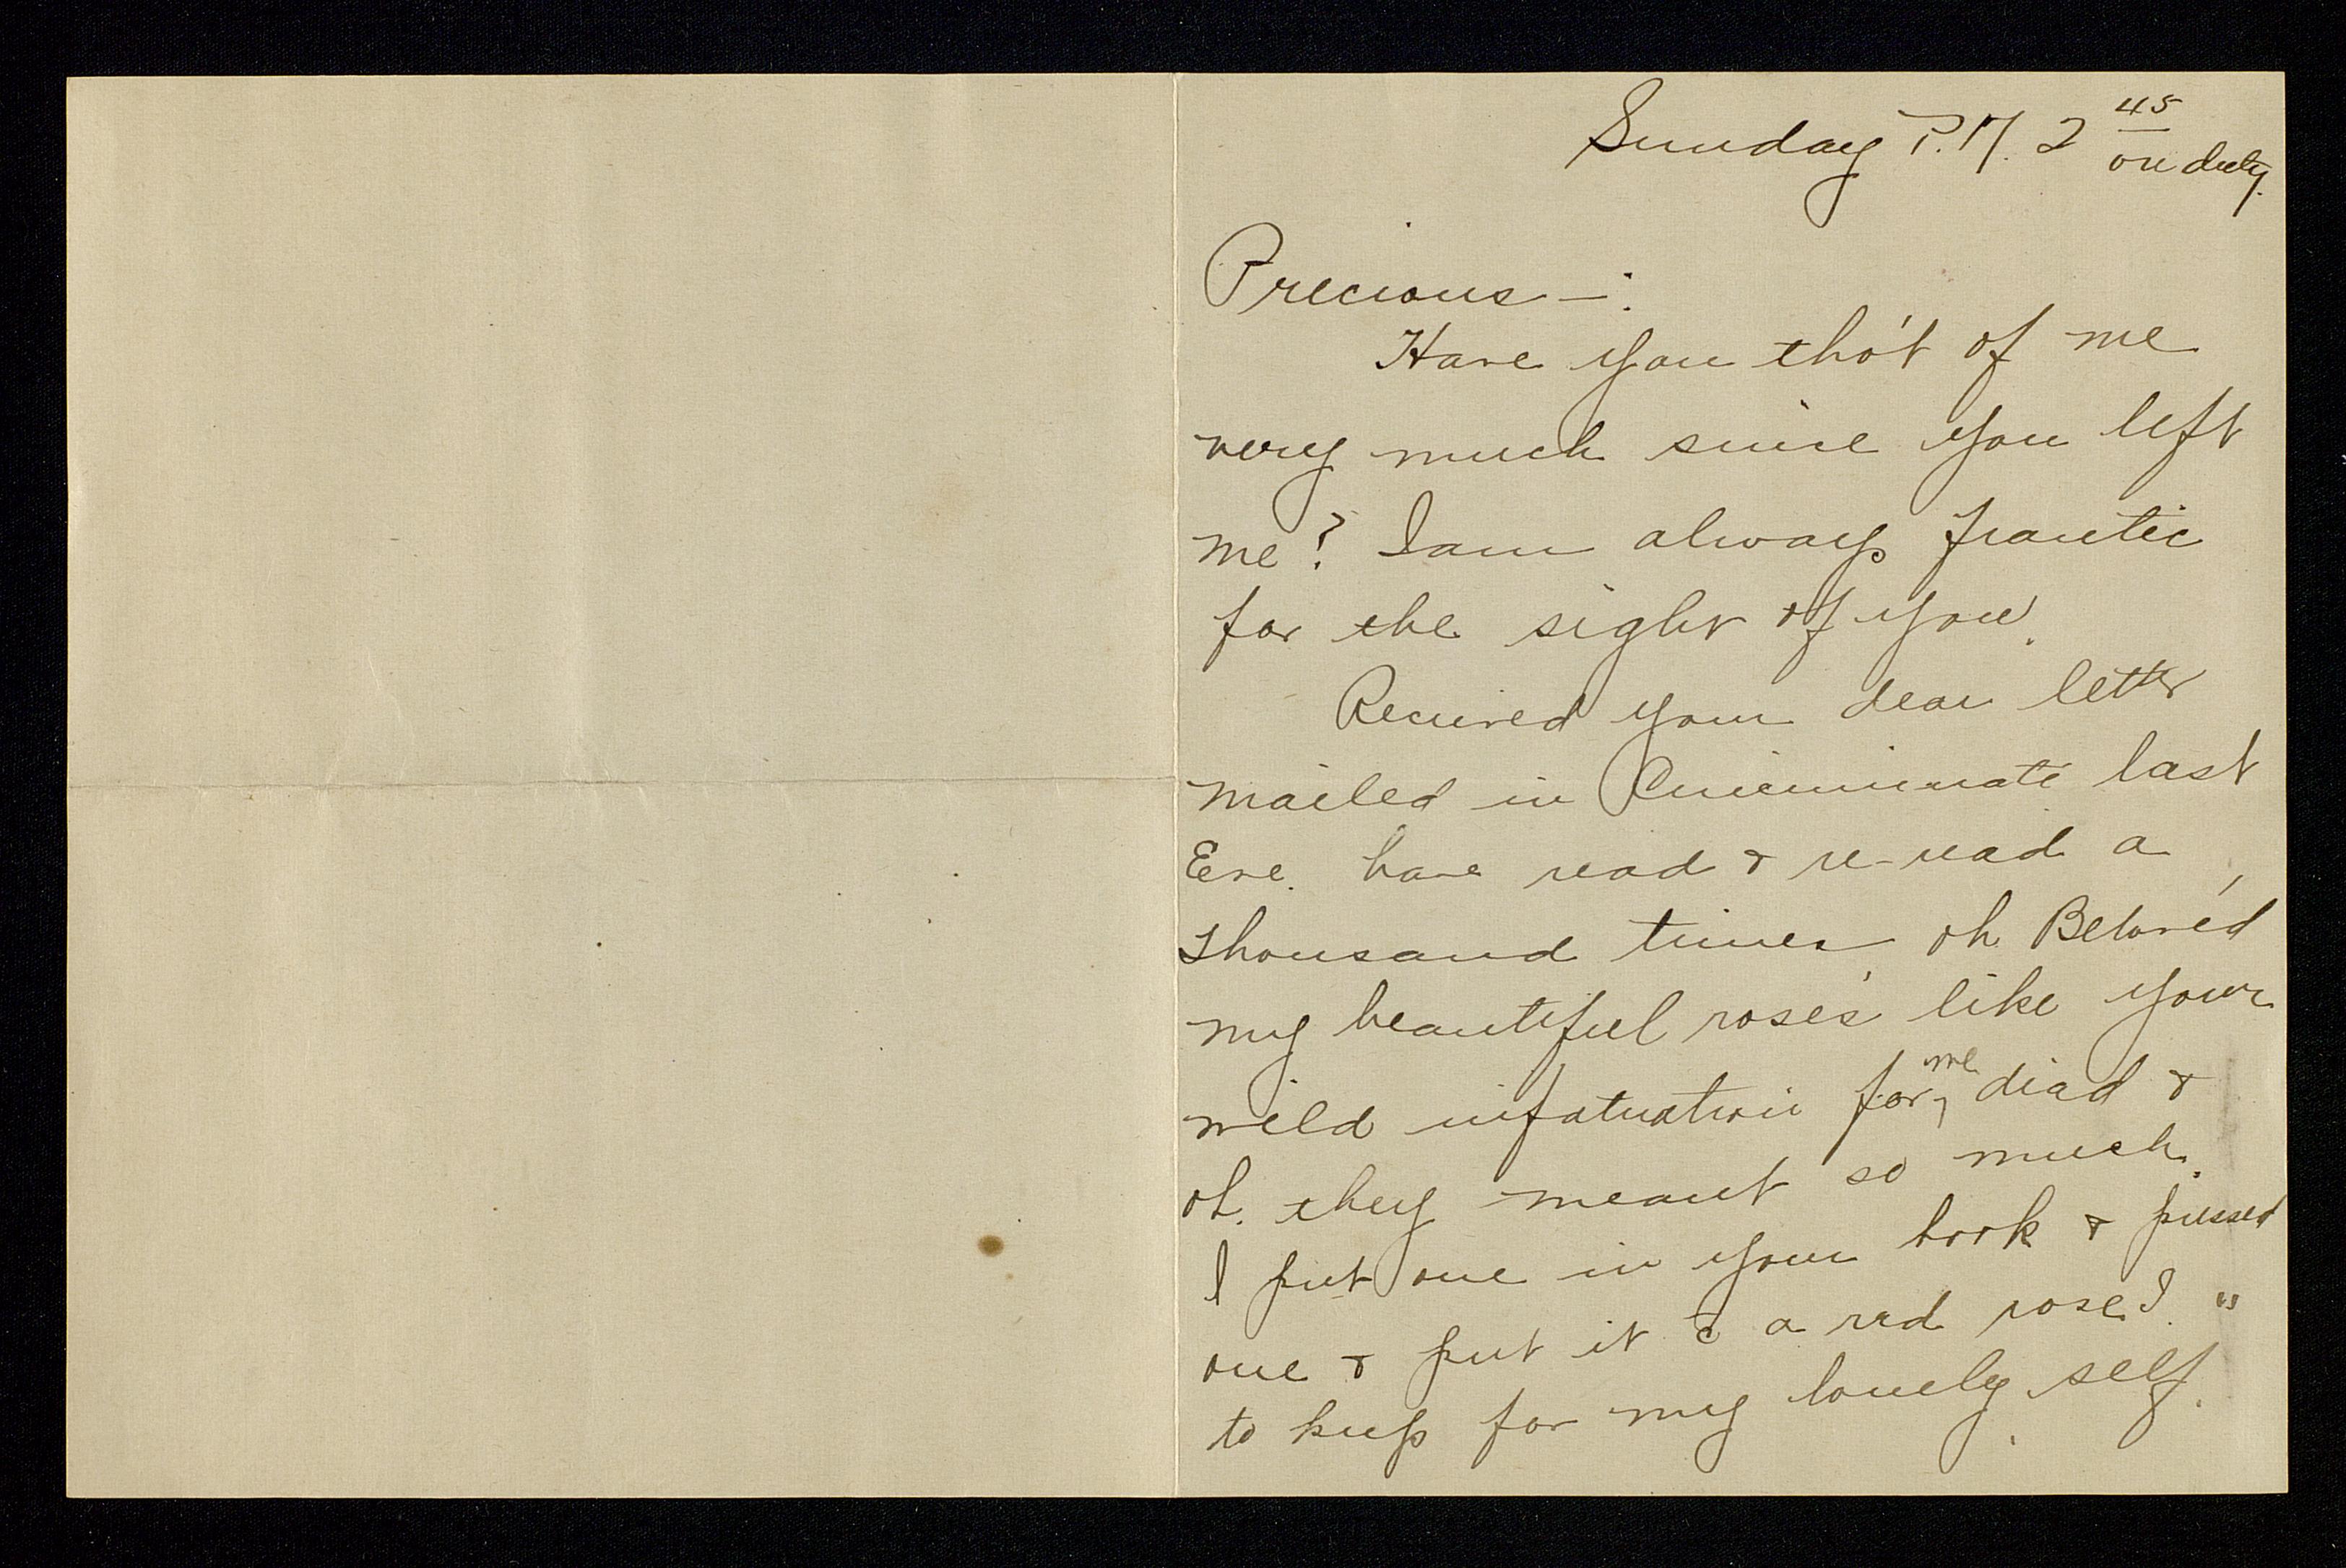 Sunday P.M. 2 45
on duty.
Precious —:
Have you tho't of me
very much since you left
me? I am always frantic
for the sight of you.
Received your dear letter
mailed in Cincinnati last
Eve. have read & re-read a
thousand times oh Belov'ed
my beautiful roses like your
wild infatuation for me diad &
oh. they meant so much.
I put one in your book & pressed
one & put it c̄ a red rose I. "
to keep for my lonely self.